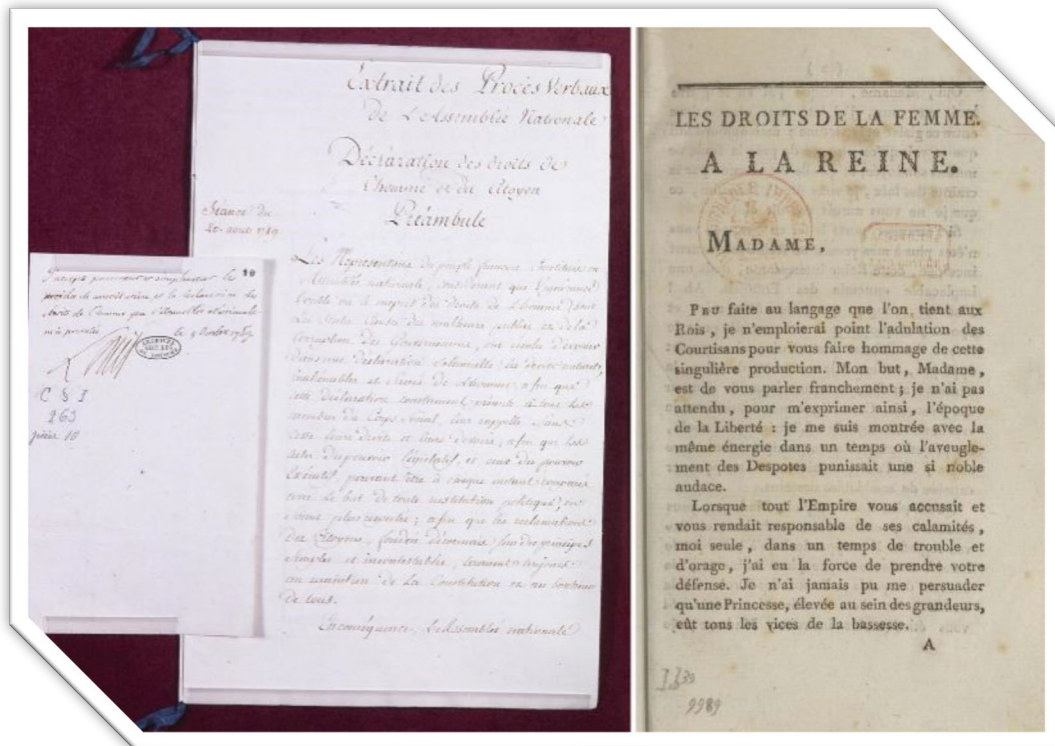 Extrait des Procès Verbaux
de L'Assemblée Nationale
Déclaration des droits de
l'homme et du Citoyen
Préambule
Séance du
20 aout 1789
Les Représentans du peuple françois, Constitués en
Assemblée nationale, considérant que l'ignorance
l'oubli ou le mépris des droits de L'homme sont
Les Seules Causes des malheurs publics et de la
Corruption des Gouvernemens, ont résolu d'exposer
dans une déclaration solemnelle, les droits naturels,
inaliénables et Sacrés de L'homme; afin que
cette déclaration constamment présente à tous les
membres du Corps Social, leur rappelle Sans
Cesse leurs droits et leurs devoirs; afin que les
actes du pouvoir législatif, et ceux du pouvoir
Exécutif, pouvant être à chaque instant comparés
avec le but de toute institution politique, en
Soient plus respectés; afin que les réclamations
des Citoyens, fondées désormais sur des principes
Simples et incontestables, tournent toujours
au maintien de La Constitution et au bonheur
de tous.
En conséquence, L'Assemblée nationale
10
J'accepte purement et simplement les
articles de constitution et la declaration des
droits de l'homme que l'assemblée nationale
m'a présentés
le 5 octobre 1789
Louis
263
LES DROITS DE LA FEMME.
A LA REINE.
MADAME,
PEU faite au langage que l'on tient aux
Rois, je n'emploierai point l'adulation des
Courtisans pour vous faire hommage de cette
singulière production. Mon but, Madame,
est de vous parler franchement ; je n'ai pas
attendu, pour m'exprimer ainsi, l'époque
de la Liberté : je me suis montrée avec la
même énergie dans un temps où l'aveugle-
ment des Despotes punissait une si noble
audace.
Lorsque tout l'Empire vous accusait et
vous rendait responsable de ses calamités,
moi seule, dans un temps de trouble et
d'orage, j'ai eu la force de prendre votre
défense. Je n'ai jamais pu me persuader
qu'une Princesse, élevée au sein des grandeurs,
eût tous les vices de la bassesse.
A
9989